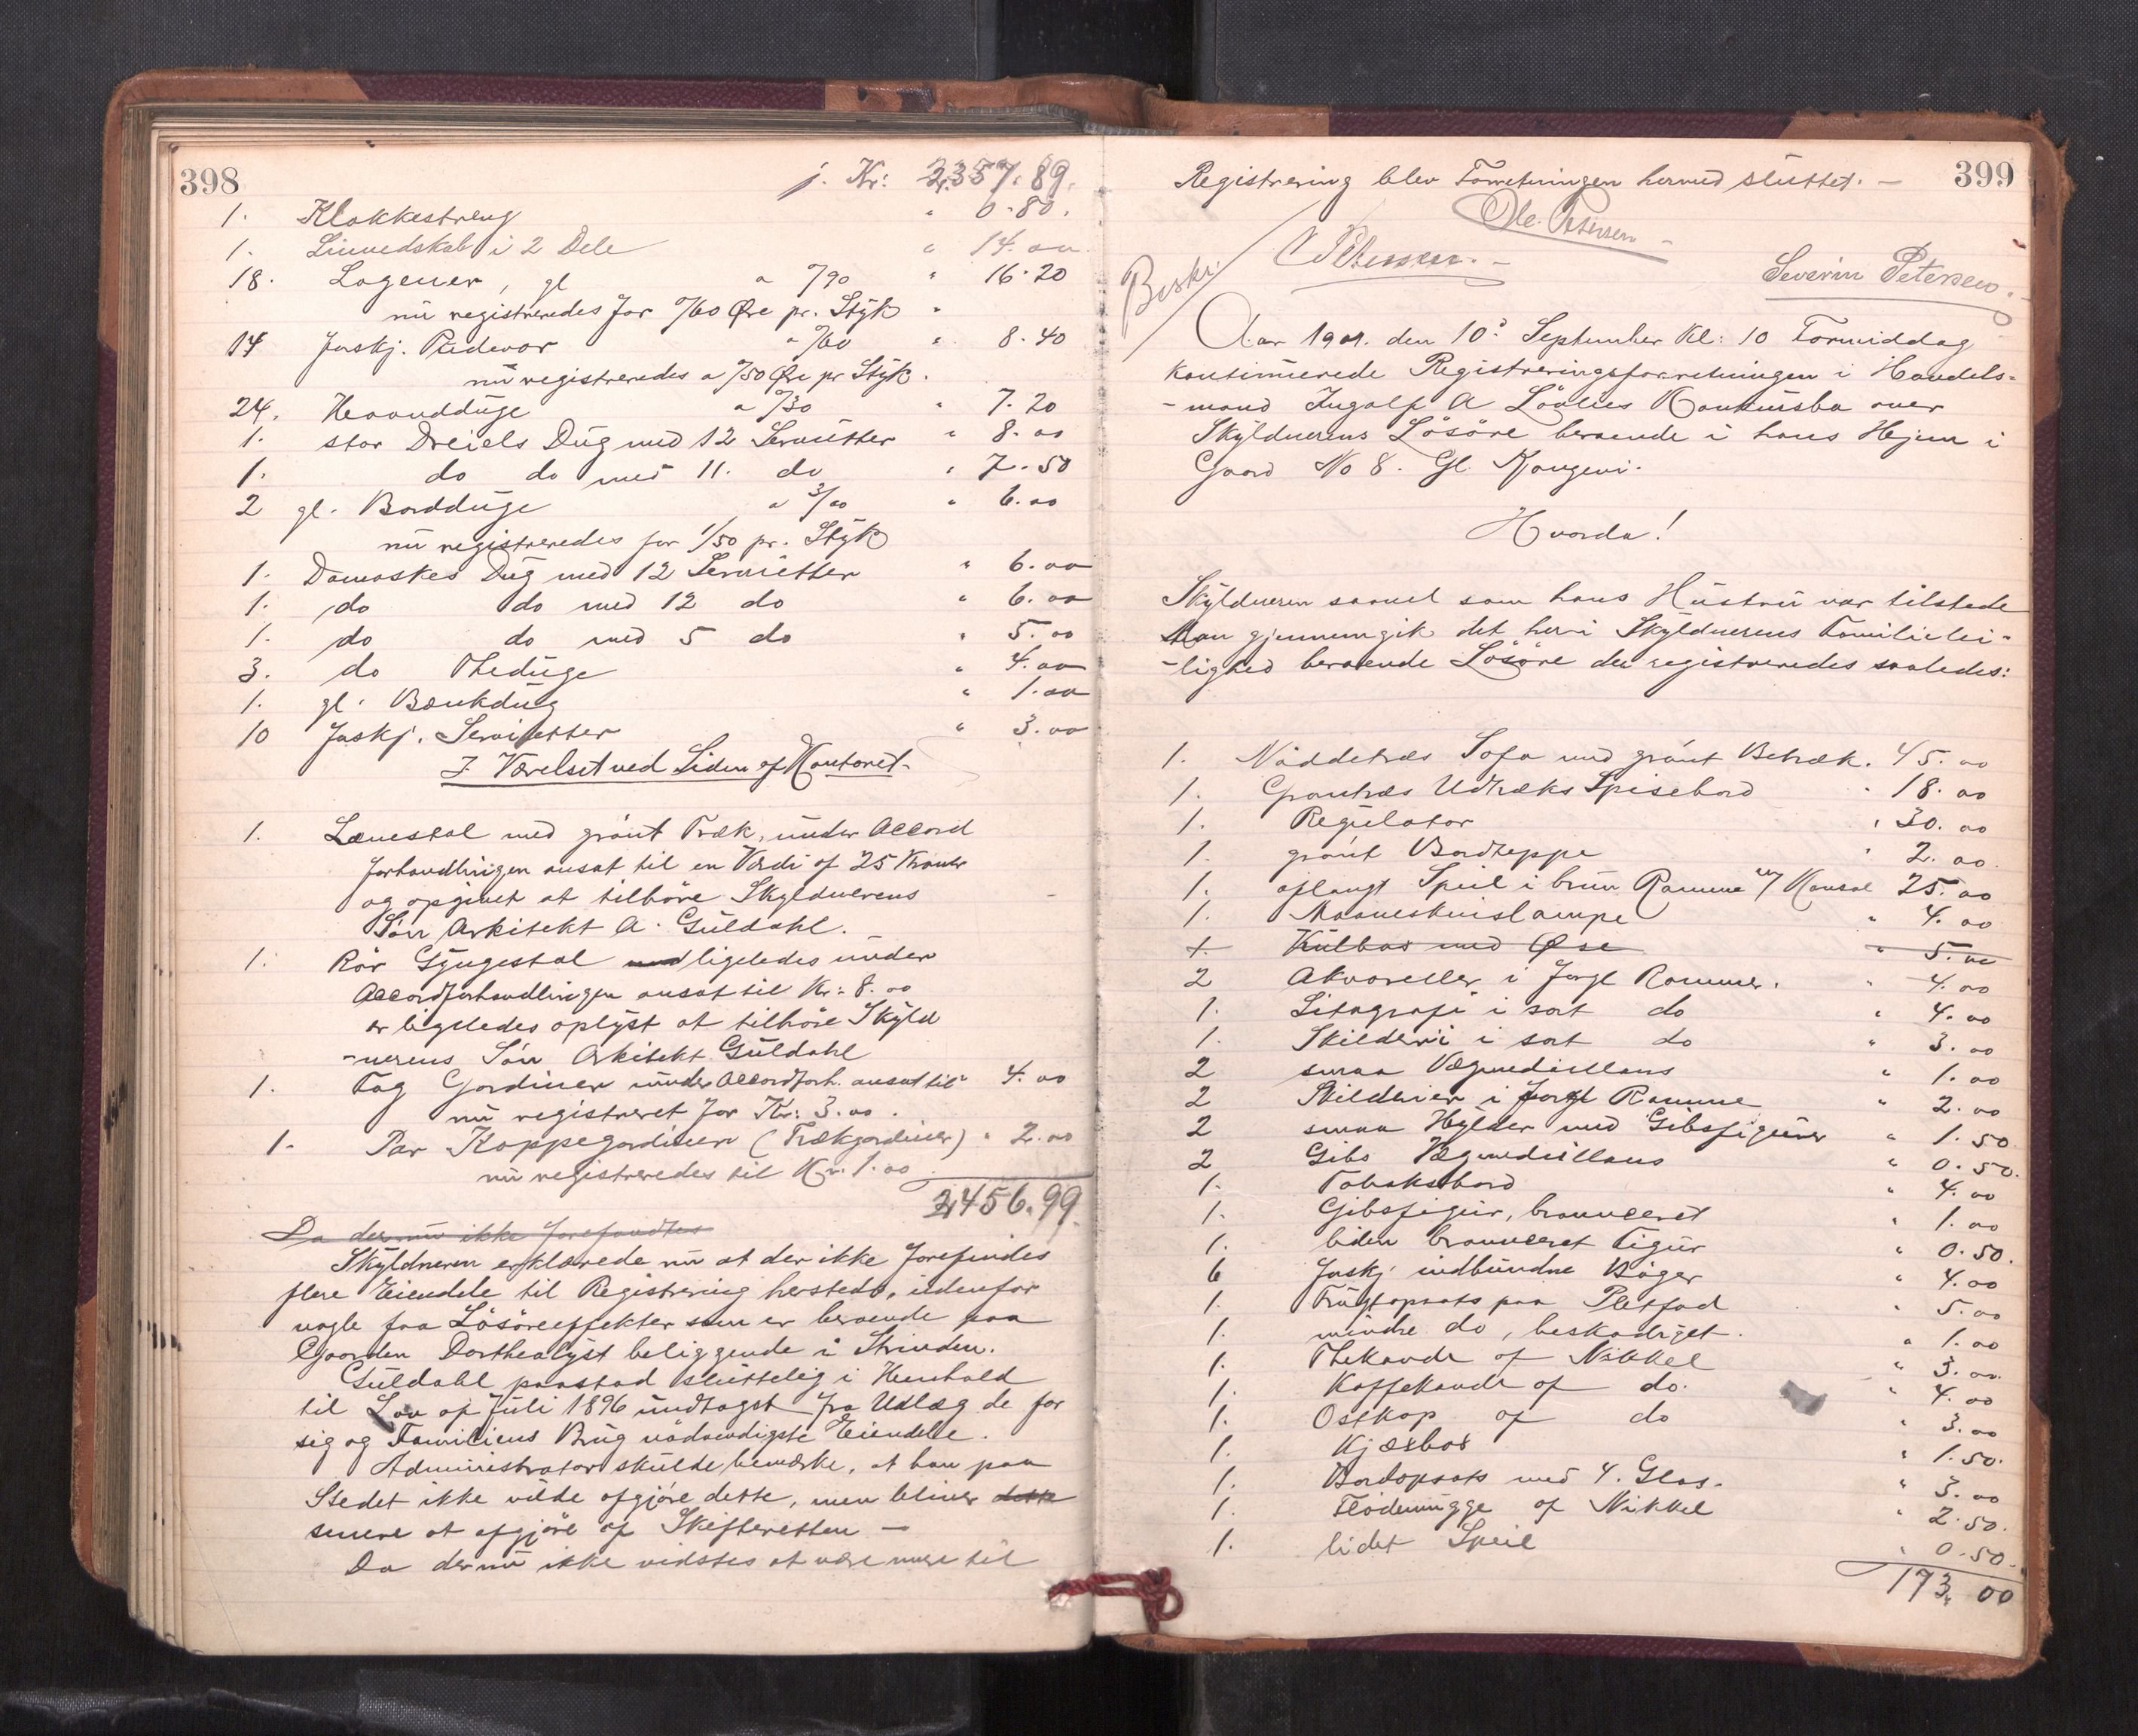 398
j. Kr: 2357.89.
1. Klokkestreng " 0.80.
1. Linnedskab i 2 Dele " 14.00
18. Lagener, gl a 0/90 " 16.20
nu registreredes for 0/60 Øre pr. Styk "
14 forskj. Pudevar a 0/60 " 8.40
nu registreredes a 0/50 Øre pr Styk.
24. Haandduge a 0/30 " 7.20
1. stor Dreiels Dug med 12 Servietter " 8.00
1. do do med 11. do " 7.50
2 gl. Bordduge a 3/00 " 6.00
nu registreredes for 1/50 pr. Styk
1. Damaskes Dug med 12 Servietter " 6.00
1. do do med 12 do " 6.00
1. do do med 5 do " 5.00
3. do Theduge " 4.00
1. gl. Bænkdug " 1.00
10 forskj. Servietter " 3.00
I Værelset ved Siden af Kontoret.
1. Lænestol med grønt Træk, under Accord
forhandlingen ansat til en Værdi af 25 Kroner
og opgivet at tilhøre Skyldnerens
Søn Arkitekt A. Guldahl.
1. Rør Gyngestol ligeledes under
Accordforhandlingen ansat til Kr: 8.00
er ligeledes oplyst at tilhøre Skyld
-nerens Søn Arkitekt Guldahl
1. Fag Gardiner under Accordforh. ansat til 4.00
nu registreret for Kr: 3.00.
1. Par Kappegardiner (Trækgardiner) " 2.00
nu registreredes til Kr. 1.00
2456.99.
Da der nu ikke forefandtes
Skyldneren erklærede nu at der ikke forefindes
flere Eiendele til Registrering hersteds, udenfor
nogle faa Løsøreeffekter som er beroende paa
Gaarden Dorthealyst beliggende i Strinden.
Guldahl paastod sluttelig i Henhold
til Lov af Juli 1896 undtagst fra Udlæg de for
sig og Familiens Brug nødvendigste Eiendele.
Administrator skulde bemærke, at han paa
Stedet ikke vilde afgjøre dette, men bliver dette
senere at afgjøre af Skifteretten —
Da der nu ikke vidstes at være mere til
399
Registrering blev Forretningen hermed sluttet. —
Ole Petersen
Severin Petersen.
Beskr.
Aar 1901. den 10d September Kl: 10 Formiddag
kontinuerede Registreringsforretningen i Handels-
-mand Ingolf A Løvlies Konkursbo over
Skyldnerens Løsøre beroende i hans Hjem i
Gaard No 8. Gl. Kongevi.
Hvorda!
Skyldneren saavel som hans Hustru var tilstede
Man gjennemgik det her i Skyldnerens Familielei-
-lighed beroende Løsøre der registreredes saaledes:
1. Nøddetræs Sofa med grønt Betræk. 45.00
1. Grantræs Udtræks Spisebord " 18.00
1. Regulator " 30.00
1. grønt Bordteppe " 2.00
1. aflangt Speil i brun Ramme m/ Konsol 25.00
1. Maaneskinslampe " 4.00
1 Kulbox med Øse " 5.00
2 Akvareller i forgl Rammer. " 4.00
1. Litografi i sort do " 4.00
1. Skilderi i sort do " 3.00
2 smaa Vægmedaillons " 1.00
2 Skilderier i forgl Ramme " 2.00
2 smaa Hylder med Gibsfigurer " 1.50
2 Gibs Vægmedaillons " 0.50.
1. Tobaksbord " 4.00
1. Gibsfigur, brounceret " 1.00
1. liden brounceret Figur " 0.50.
6 forskj indbundne Bøger " 4.00
1. Frugtopsats paa Pletfod " 5.00
1. mindre do, beskadiget. " 1.00
1. Thekande af Nikkel " 3.00
1. Kaffekande af do. " 4.00
1. Ostkop af do " 3.00
1. Kjæxbox " 1.50.
1. Bordopsats med 4. Glas. " 3.00
1. Flødemugge af Nikkel " 2.50.
1. lidet Speil " 0.50.
173.00